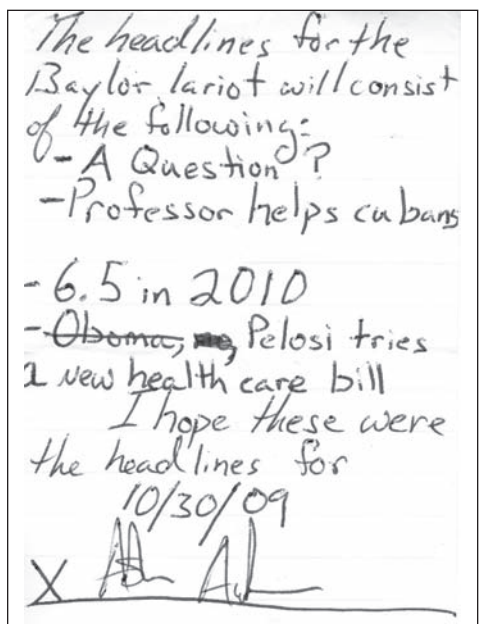 The headlines for the
Baylor lariot will consist
of the following:
- A Question?
- Professor helps cubans
- 6.5 in 2010
- Oboma, Pelosi tries
a new health care bill
I hope these were
the headlines for
10/30/09
X